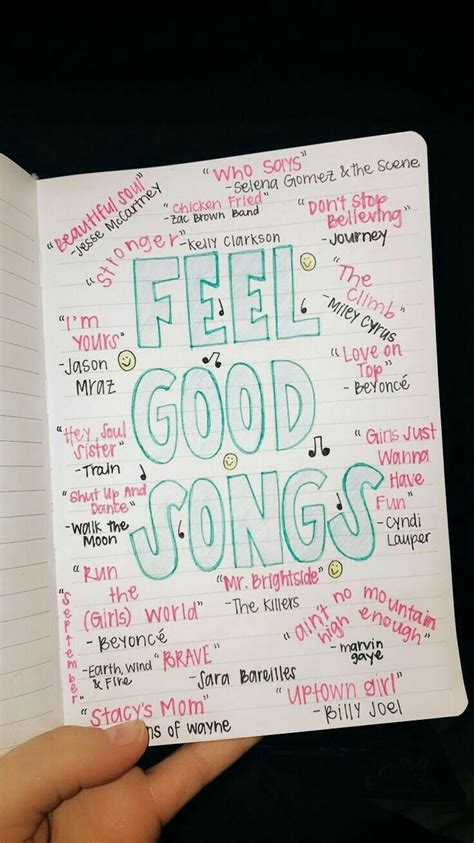 "Who Says"
-Selena Gomez & the Scene
"Beautiful Soul"
-Jesse McCartney
"Chicken Fried"
-Zac Brown Band
"Don't Stop
Believing"
-Journey
"Stronger"
-Kelly Clarkson
FEEL
GOOD
SONGS
"The
Climb"
-Miley Cyrus
"I'm
Yours"
-Jason
Mraz
"Love on
Top"
-Beyoncé
"Hey, Soul
Sister"
-Train
"Girls Just
Wanna
Have
Fun"
-Cyndi
Lauper
"Shut Up And
Dance"
-Walk the
Moon
"Run
the
(Girls) World"
-Beyoncé
"Mr. Brightside"
-The Killers
"ain't no mountain
high enough"
-marvin
gaye
"September"
-Earth, Wind
& Fire
"BRAVE"
-Sara Bareilles
"Stacy's Mom"
ns of wayne
"uptown girl"
-Billy Joel